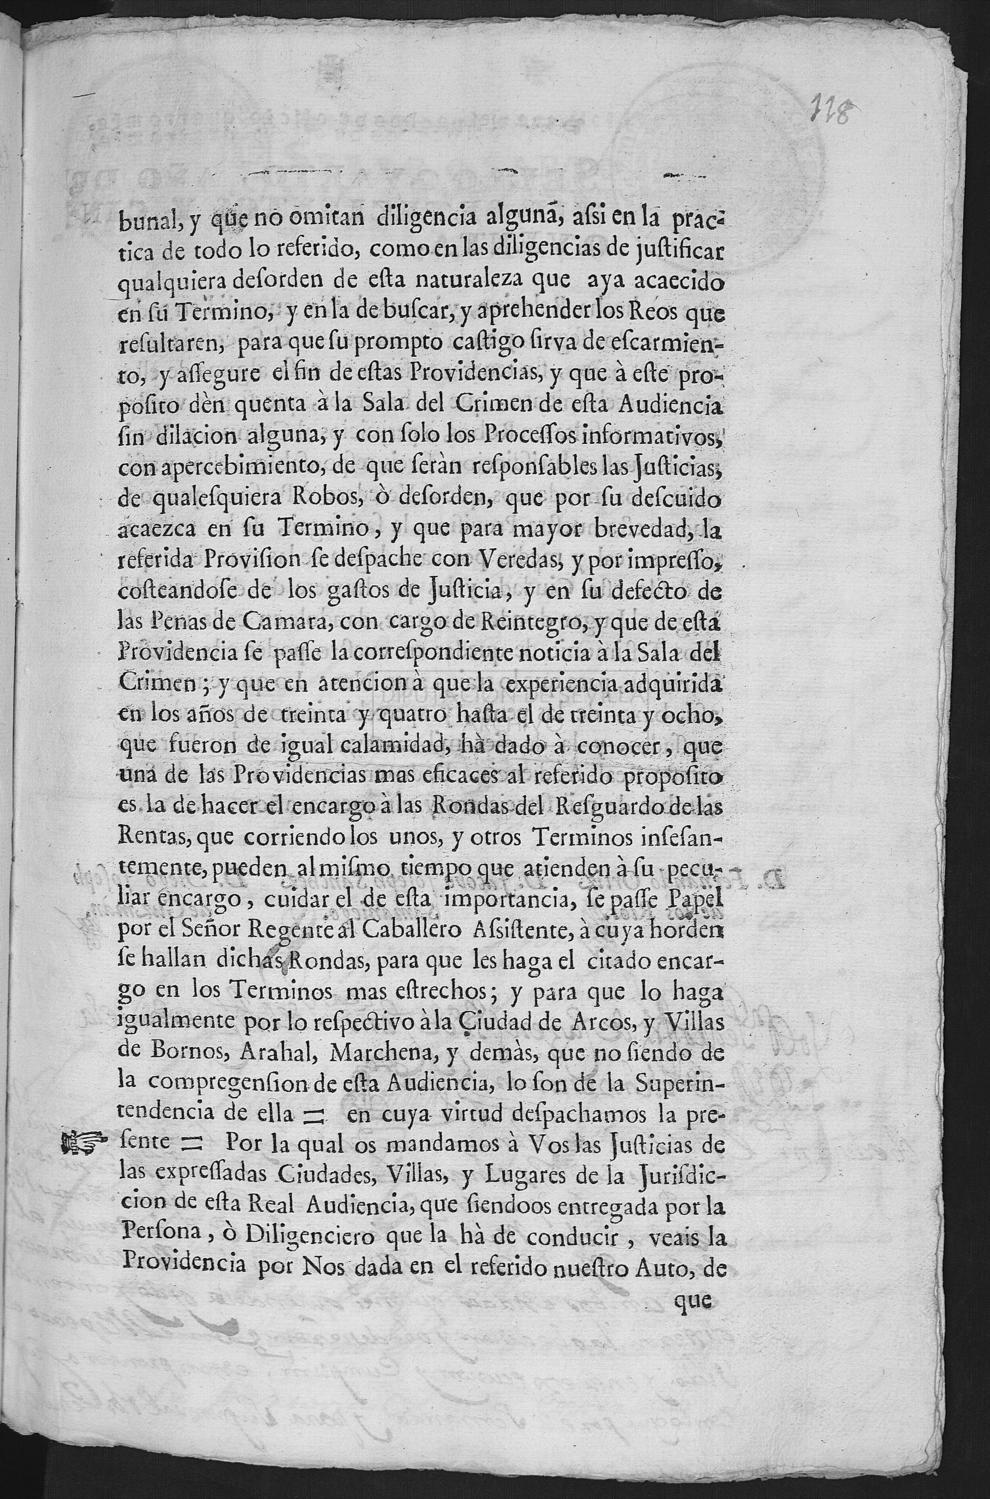 118
bunal, y que no omitan diligencia algunã, aſsi en la prac-
tica de todo lo referido, como en las diligencias de juſtificar
qualquiera deſorden de eſta naturaleza que aya acaecido
en ſu Termino, y en la de buſcar, y aprehender los Reos que
reſultaren, para que ſu prompto caſtigo ſirva de eſcarmien-
to, y aſſegure el fin de eſtas Providencias, y que à eſte pro-
poſito dèn quenta à la Sala del Crimen de eſta Audiencia
ſin dilacion alguna, y con ſolo los Proceſſos informativos,
con apercebimiento, de que ſeràn reſponſables las Juſticias,
de qualeſquiera Robos, ò deſorden, que por ſu deſcuido
acaezca en ſu Termino, y que para mayor brevedad, la
referida Proviſion ſe deſpache con Veredas, y por impreſſo,
coſteandoſe de los gaſtos de Juſticia, y en ſu defecto de
las Penas de Camara, con cargo de Reintegro, y que de eſta
Providencia ſe paſſe la correſpondiente noticia à la Sala del
Crimen; y que en atencion à que la experiencia adquirida
en los años de treinta y quatro haſta el de treinta y ocho,
que fueron de igual calamidad, hà dado à conocer, que
una de las Providencias mas eficaces al referido propoſito
es la de hacer el encargo à las Rondas del Reſguardo de las
Rentas, que corriendo los unos, y otros Terminos inſeſan-
temente, pueden al miſmo tiempo que atienden à ſu pecu-
liar encargo, cuidar el de eſta importancia, ſe paſſe Papel
por el Señor Regente al Caballero Aſsiſtente, à cuya horden
ſe hallan dichas Rondas, para que les haga el citado encar-
go en los Terminos mas eſtrechos; y para que lo haga
igualmente por lo reſpectivo à la Ciudad de Arcos, y Villas
de Bornos, Arahal, Marchena, y demàs, que no ſiendo de
la compregenſion de eſta Audiencia, lo ſon de la Superin-
tendencia de ella = en cuya virtud deſpachamos la pre-
☞ ſente = Por la qual os mandamos à Vos las Juſticias de
las expreſſadas Ciudades, Villas, y Lugares de la Juriſdic-
cion de eſta Real Audiencia, que ſiendoos entregada por la
Perſona, ò Diligenciero que la hà de conducir, veais la
Providencia por Nos dada en el referido nueſtro Auto, de
que